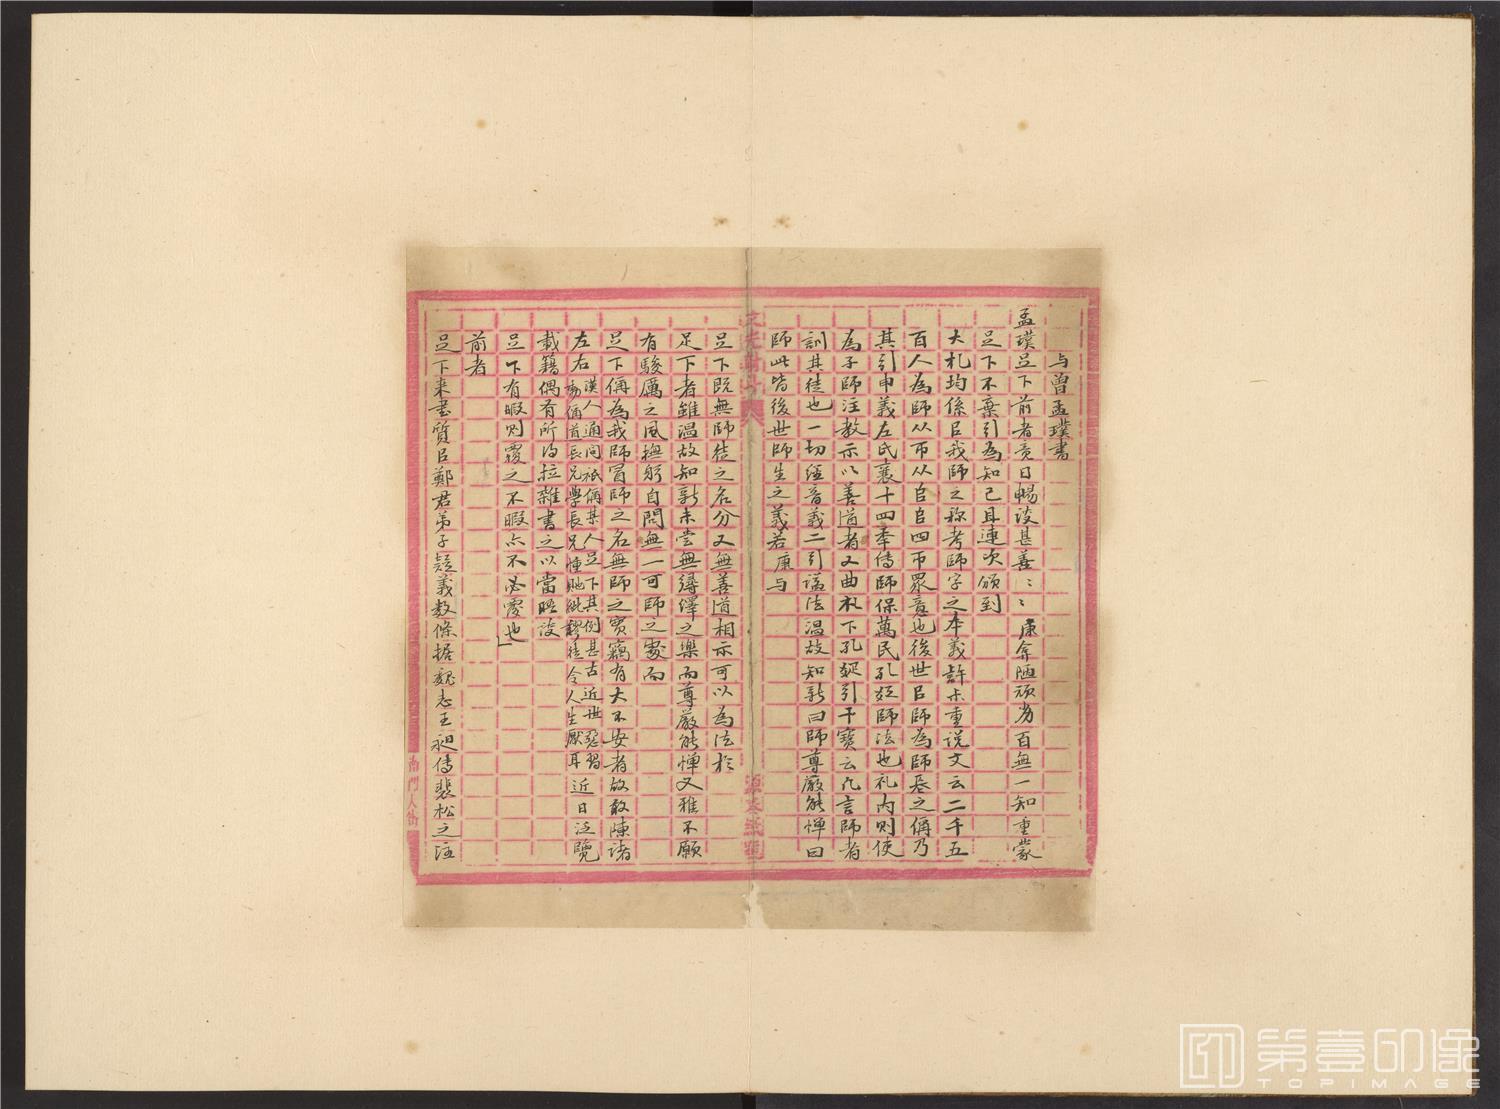 与曾孟璞書
孟璞足下前者竟日暢談甚善〻〻康弇陋頑劣百無一知重蒙
足下不棄引為知己且連次頒到
大札均係㠯我師之称考師字之本義許未重説文云二千五
百人為師从帀从𠂤𠂤四帀眾意也後世㠯師為師長之偁乃
其引申義左氏襄十四年傳師保萬民孔疏師法也礼内則使
為子師注教示以善道者又曲礼下孔疏引干寶云凡言師者
訓其徒也一切經音義二引謚法温故知新曰師尊嚴能憚曰
師此皆後世師生之義若康与
足下既無師徒之名分又無善道相示可以為法於
足下者雖温故知新未尝無𦂶繹之樂而尊嚴能憚又雅不願
有駿厲之風撫躬自問無一可師之處而
足下偁為我師冒師之名無師之實竊有大不安者故敢陳诸
左右漢人通问祇偁某人足下其例甚古近世惡習
動偁首長兄學長兄憧
令人生厭耳近日泛覽
載籍偶有所得拉雜書之以當晤談
足下有暇则覆之不暇亦不必覆也
前者
足下来書質㠯鄭君弟子疑義数條据魏志王昶傳裴松之注
南門大街
TOPIMAGE
第壹印像